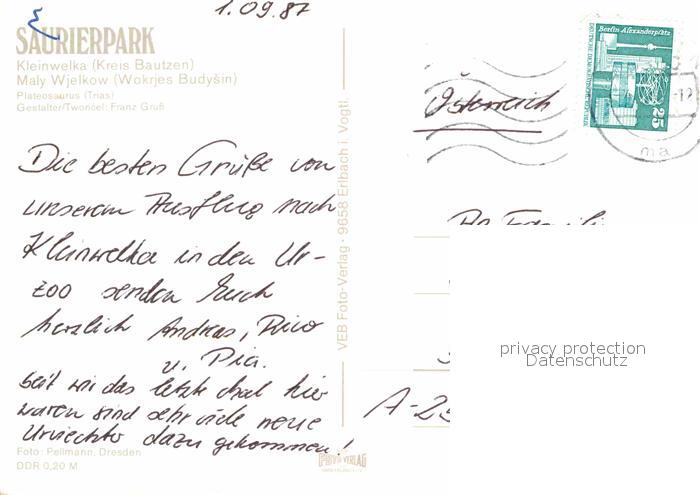 1.09.87
SAURIERPARK
Kleinwelka (Kreis Bautzen)
Maly Wjelkow (Wokrjes Budyšin)
Plateosaurus (Trias)
Gestalter/Tworićel: Franz Gruß
Die besten Grüße von
unserem Ausflug nach
Kleinwelka in den Ur-
zoo senden Euch
herzlich Andreas, Rico
u. Pia.
Seit wir das letzte Mal hier
waren sind sehr viele neue
Urviechter dazu gekommen!
Foto: Pellmann, Dresden
DDR 0,20 M
VEB Foto-Verlag · 9658 Erlbach i. Vogtl.
FOTO VERLAG
Berlin, Alexanderplatz
DEUTSCHE DEMOKRATISCHE REPUBLIK
25
Österreich
A-25
privacy protection
Datenschutz